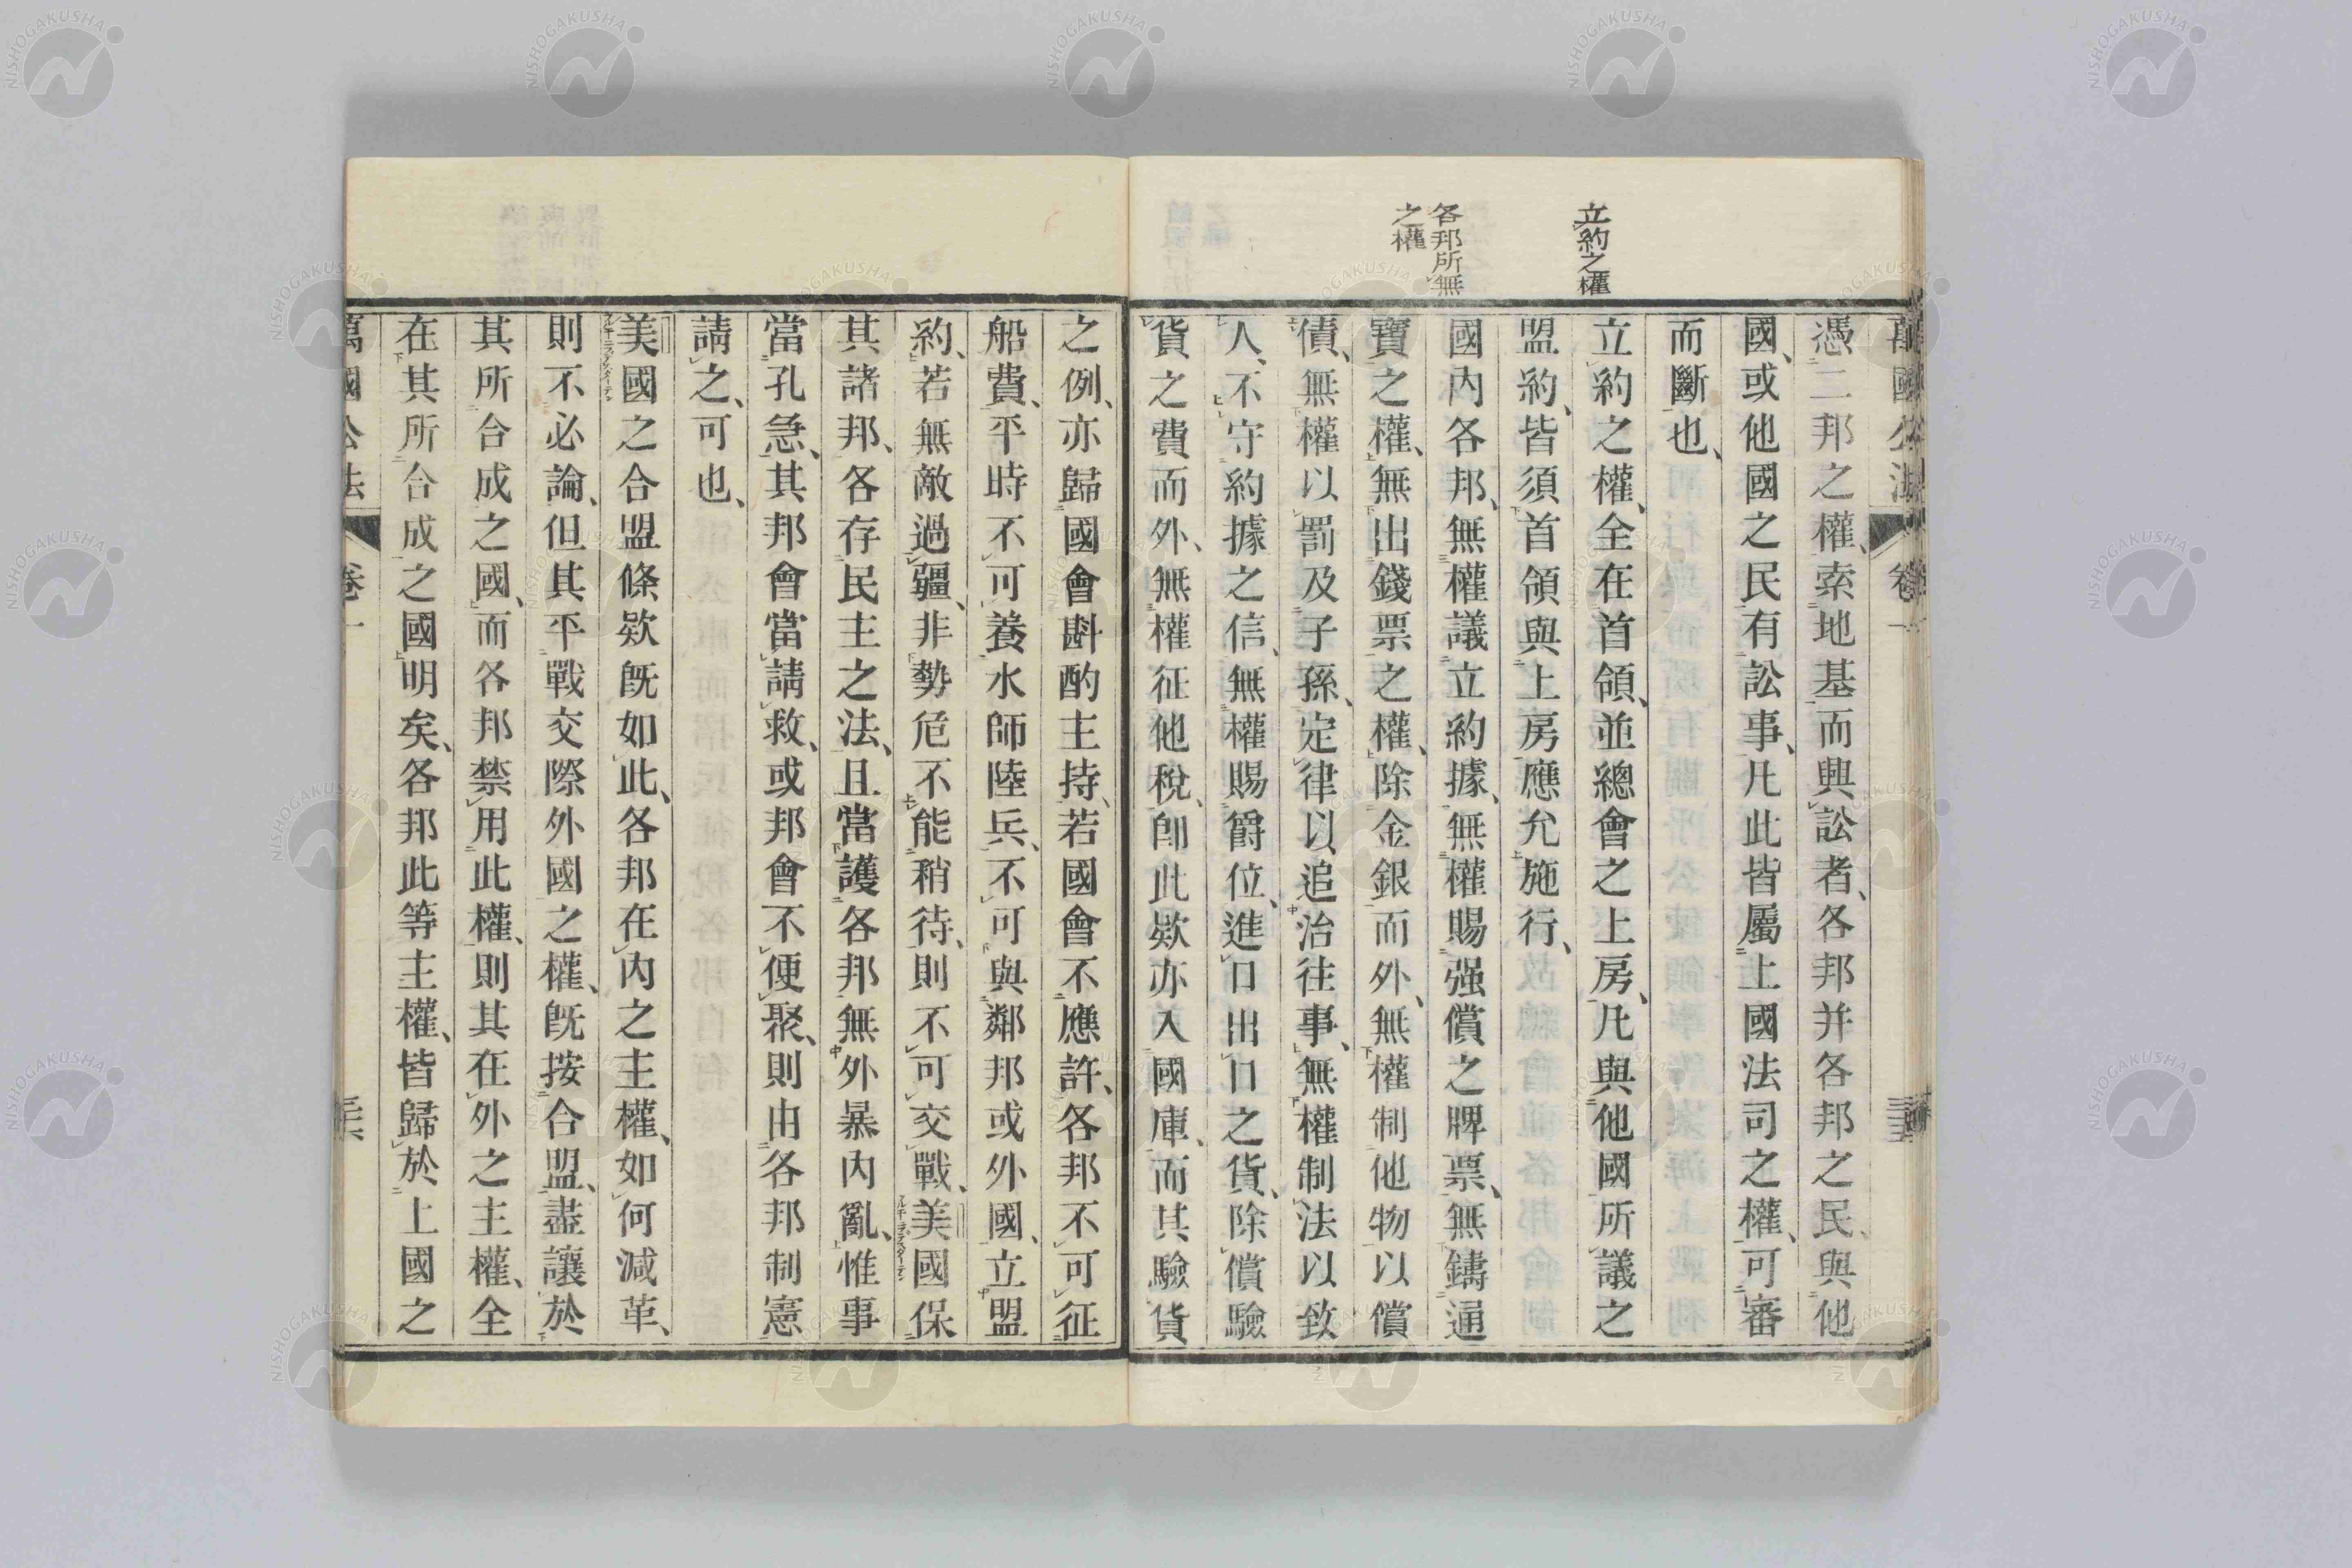 萬國公法 卷一
憑二邦之權、索地基而興訟者、各邦并各邦之民、與他
國、或他國之民有訟事、凡此皆屬上國法司之權、可審
而斷也、
立約之權
立約之權、全在首領、並總會之上房、凡與他國所議之
盟約、皆須首領與上房應允施行、
各邦所無
之權
國內各邦、無權議立約據、無權賜强償之牌票、無鑄通
寶之權、無出錢票之權、除金銀而外、無權制他物以償
債、無權以罰及子孫、定律以追治往事、無權制法以致
人、不守約據之信、無權賜爵位、進口出口之貨、除償驗
貨之費而外、無權征他稅、卽此欵亦入國庫、而其驗貨
之例、亦歸國會斟酌主持、若國會不應許、各邦不可征
船費、平時不可養水師陸兵、不可與鄰邦或外國、立盟
約、若無敵過疆、非勢危不能稍待、則不可交戰、美國保
其諸邦、各存民主之法、且當護各邦無外暴內亂、惟事
當孔急、其邦會當請救、或邦會不便聚、則由各邦制憲
請之、可也、
美國之合盟條欵旣如此、各邦在內之主權、如何減革、
則不必論、但其平戰交際外國之權、旣按合盟、盡讓於
其所合成之國、而各邦禁用此權、則其在外之主權、全
在其所合成之國明矣、各邦此等主權、皆歸於上國之
萬國公法 卷一
NISHOGAKUSHA